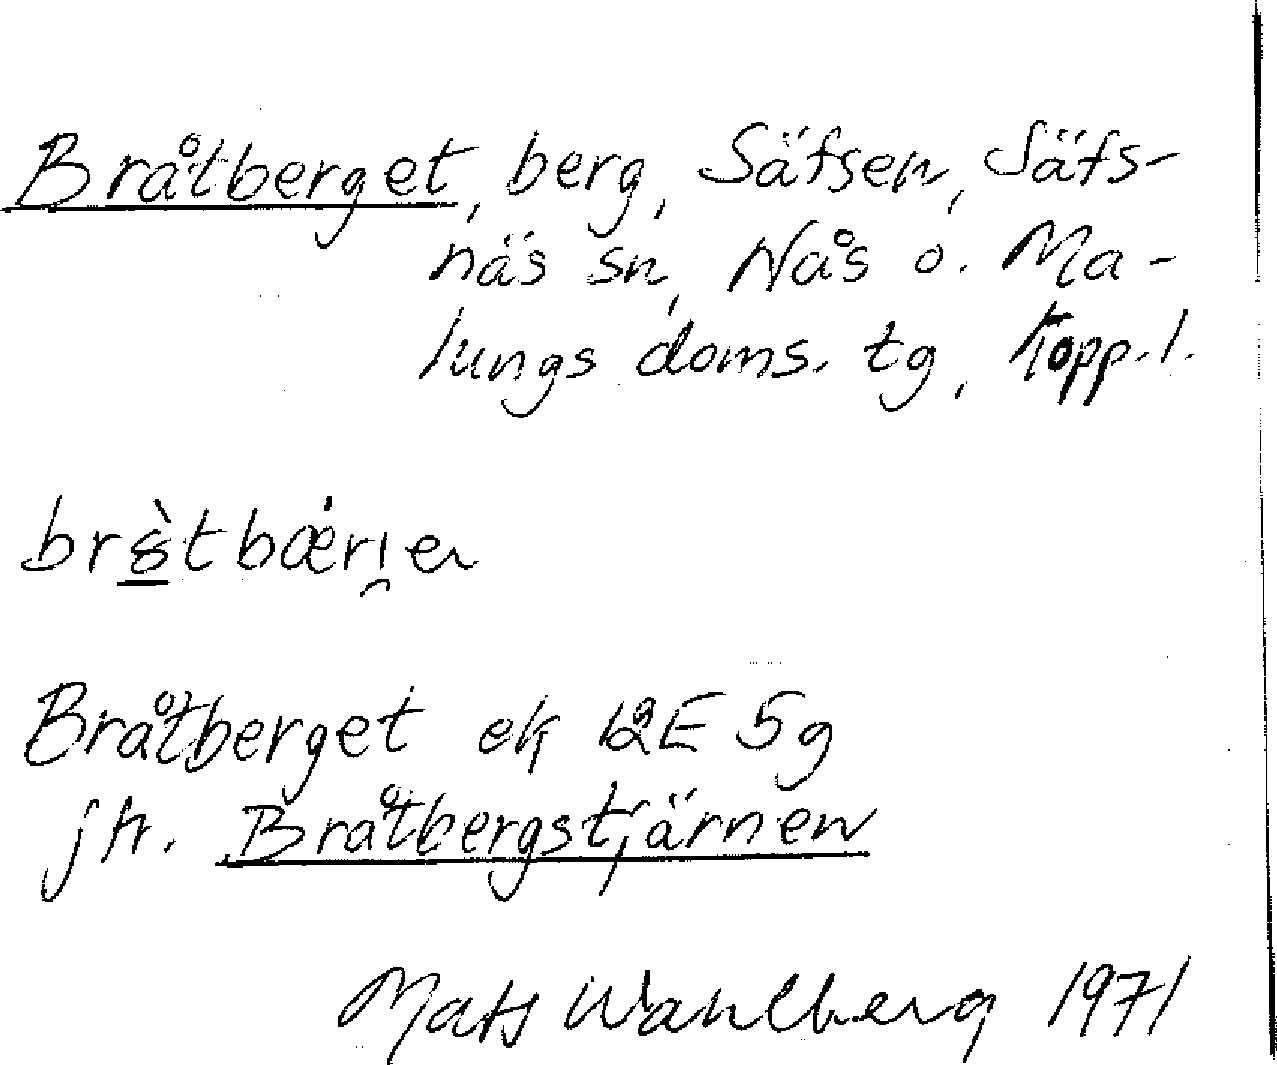 Bråtberget, berg, Säfsen, Säfs-
näs sn, Nås o. Ma-
lungs doms. tg, Kopp. l.
Bråtberget ek 12E 5g
jfr. Bråtbergstjärnen
Mats Wahlberg 1971